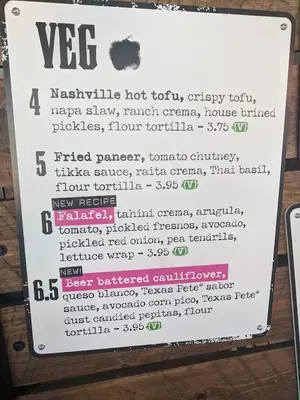 VEG
4 Nashville hot tofu, crispy tofu,
napa slaw, ranch crema, house brined
pickles, flour tortilla - 3.75 (V)
5 Fried paneer, tomato chutney,
tikka sauce, raita crema, Thai basil,
flour tortilla - 3.95 (V)
NEW RECIPE
6 Falafel, tahini crema, arugula,
tomato, pickled fresnos, avocado,
pickled red onion, pea tendrils,
lettuce wrap - 3.95 (V)
NEW!
6.5 Beer battered cauliflower,
queso blanco, Texas Pete® sabor
sauce, avocado corn pico, Texas Pete®
dust candied pepitas, flour
tortilla - 3.95 (V)